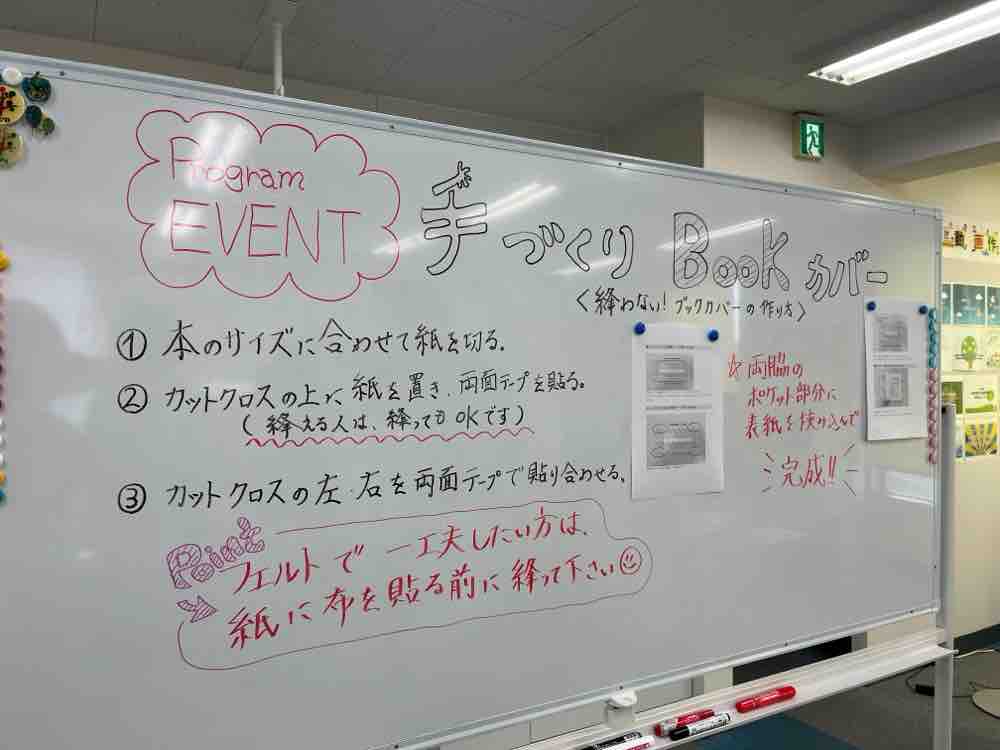 Program
EVENT
手づくり Book カバー
〈縫わない! ブックカバーの作り方〉
① 本のサイズに合わせて紙を切る。
② カットクロスの上に紙を置き、両面テープを貼る。
(縫える人は、縫ってもOKです)
③ カットクロスの左・右を両面テープで貼り合わせる。
Point
フェルトで一工夫したい方は、
紙に布を貼る前に縫って下さい
☆両脇の
ポケット部分に
表紙を挟み込んで
完成!!